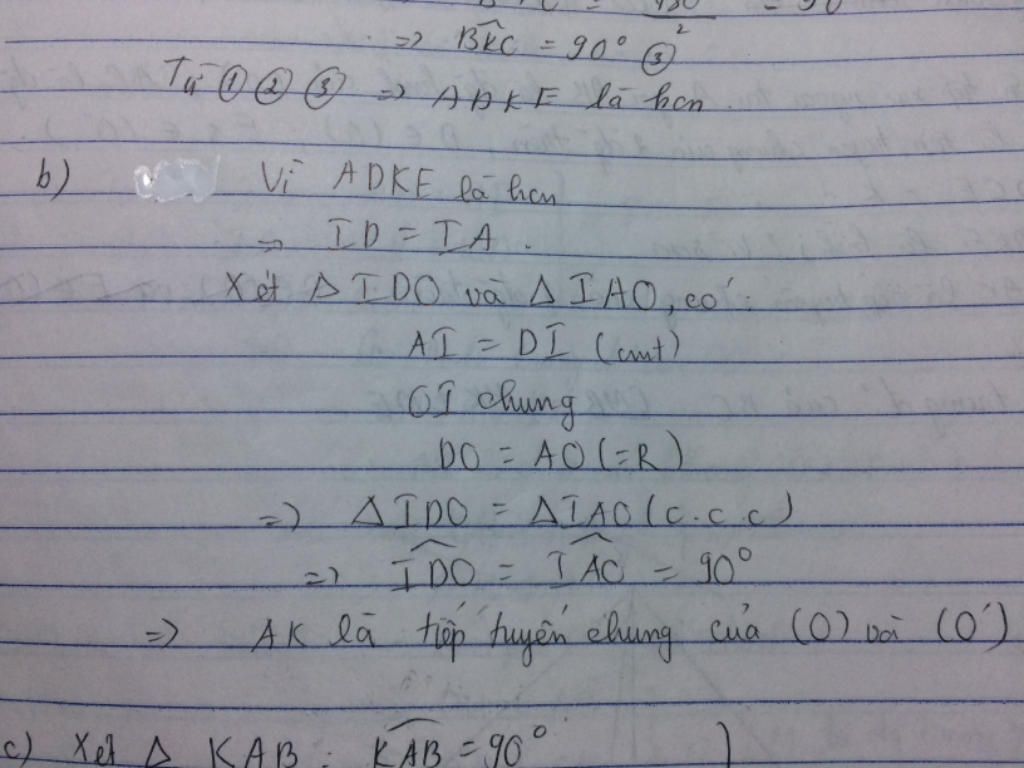 => BKC = 90° ③
Từ ① ② ③ => ADKE là hcn.
b) Vì ADKE là hcn
=> ID = IA.
Xét Δ IDO và Δ IAO, có:
AI = DI (cmt)
OI chung
DO = AO (=R)
=> Δ IDO = Δ IAO (c.c.c)
=> IDO = IAO = 90°
=> AK là tiếp tuyến chung của (O) và (O')
c) Xét Δ KAB : KAB = 90° }